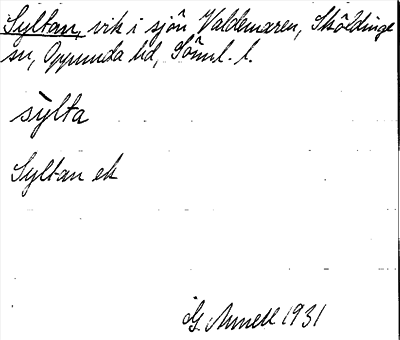 Syltan, vik i sjön Valdemaren, Sköldinge
sn, Oppunda hd, Söml. l.
sỳlta
Syltan ek
G. Annell 1931